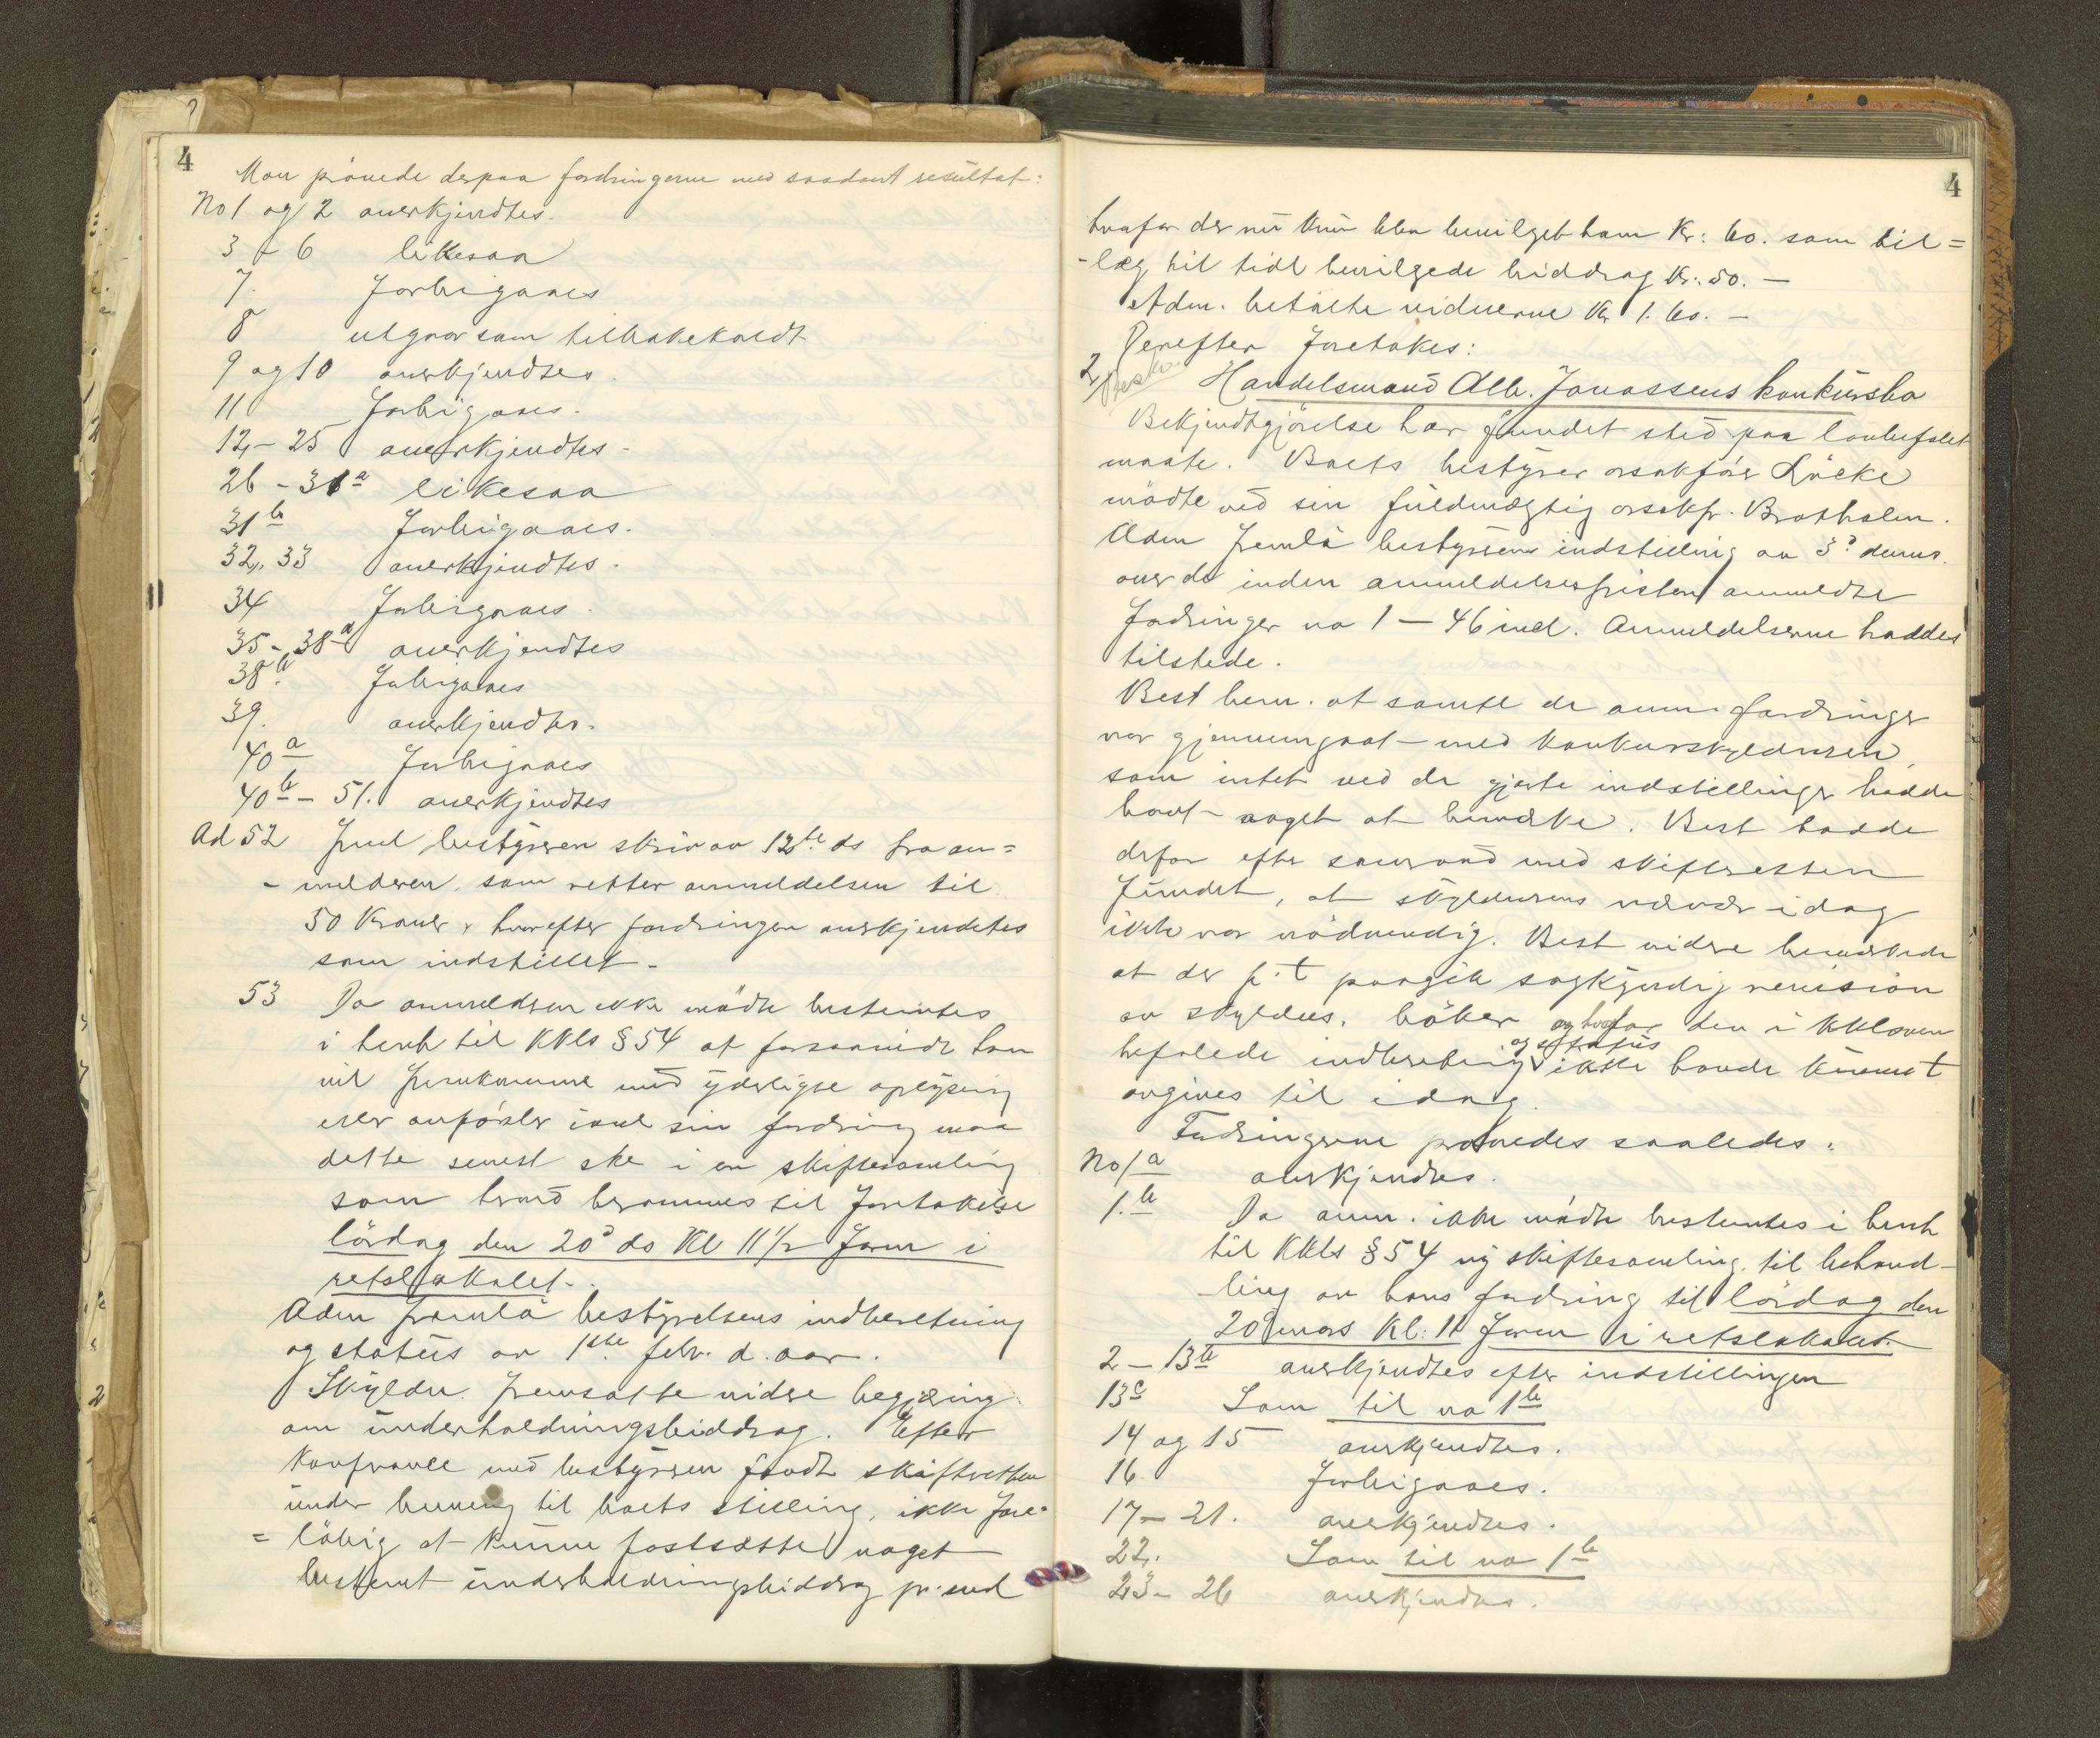 4
Man prövede derpaa fordringerne med saadant resultat:
No 1 og 2 anerkjendtes.
3 - 6 likesaa
7. Forbigaaes
8 utgaar som tilbakekaldt
9 og 10 anerkjendtes.
11 Forbigaaes.
12 - 25 anerkjendtes -
26 - 31a likesaa
31b Forbigaaes.
32, 33 anerkjendtes.
34 Forbigaaes.
35 - 38a anerkjendtes
38b. Forbigaaes
39. anerkjendtes.
40a Forbigaaes
40b - 51. anerkjendtes
Ad 52 Freml bestyreren skriv av 12te ds fra an=
- melderen, som retter anmeldelsen til
50 Kroner, hvorefter fordringen anerkjendtes
som indstillet -
53 Da anmelderen ikke mödte bestemtes
i henh til KKls § 54 at forsaavidt han
vil fremkomme med yderligere oplysning
eller anförsler isaml sin fordring maa
dette senest ske i en skiftesamling
som herved berammes til Foretakelse
lördag den 20d ds Kl 11 1/2 Form i
retslokalet.
Adm fremla bestyrelsens indberetning
og status av 1ste febr. d. aar.
Skyldn. fremsatte videre begjæring
om underholdningsbidrag. Efter
Konferance med bestyreren fandt skifteretten
under hensyn til boets stilling, ikke fore=
= löbig at kunne fastsætte noget
bestemt underholdningsbidrag pr. md
4
hvorfor der nu kun blev bevilget ham Kr: 60. som til=
- læg til tidl bevilgede biddrag Kr: 50. -
Adm. betalte vidnerne Kr 1.60. -
Derefter Foretakes:
2, Handelsmand Alb. Jonassens konkursbo
Bekjendtgjörelse har fundet sted paa lovbefalet
maate. Boets bestyrer orsakför Lücke
mödte ved sin fuldmægtig orsakfr. Bratholm.
Adm fremla bestyrerens indstilling av 3d dennes
over de inden anmeldelsesfristen anmeldte
Fordringer no 1 - 46 incl. Anmeldelserne haddes
tilstede.
Best bem. at samtl de anm. fordringer
var gjennemgaat med Konkursskyldneren,
som intet ved de gjorte indstillinger hadde
havt noget at bemerke. Best hadde
derfor efter samraad med skifteretten
fundet, at skyldnerens nærvær idag
ikke var nödvendig. Best videre bemerkede
at der p.t paagik sagkyndig revision
av skyldns. böker og hvorfor den i KKloven
befalede indberetning og status ikke havde kunnet
avgives til idag.
Fordringerne prövedes saaledes:
No 1a anerkjendtes.
1.b Da anm. ikke mödte bestemtes i henh
til KKls § 54 ny skiftesamling til behand-
- ling av hans fordring til lördag den
20d mars Kl: 11 Form i retslokalet.
2 - 13b anerkjendtes efter indstillingen
13c Som til no 1b
14 og 15 anerkjendtes.
16. Forbigaaes.
17 - 21. anerkjendtes.
22. Som til no 1b
23 - 26 anerkjendtes.